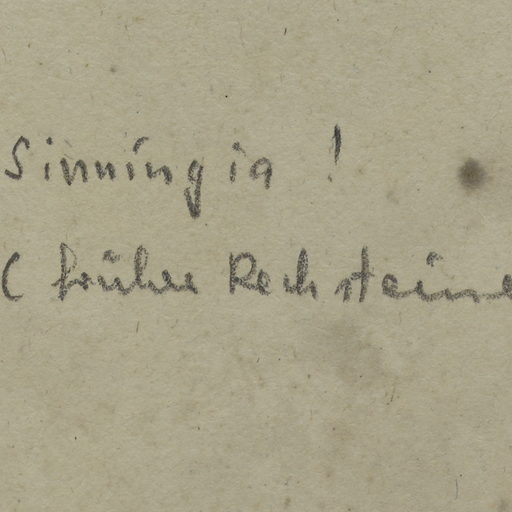 Sinningia !
( früher Rechsteine